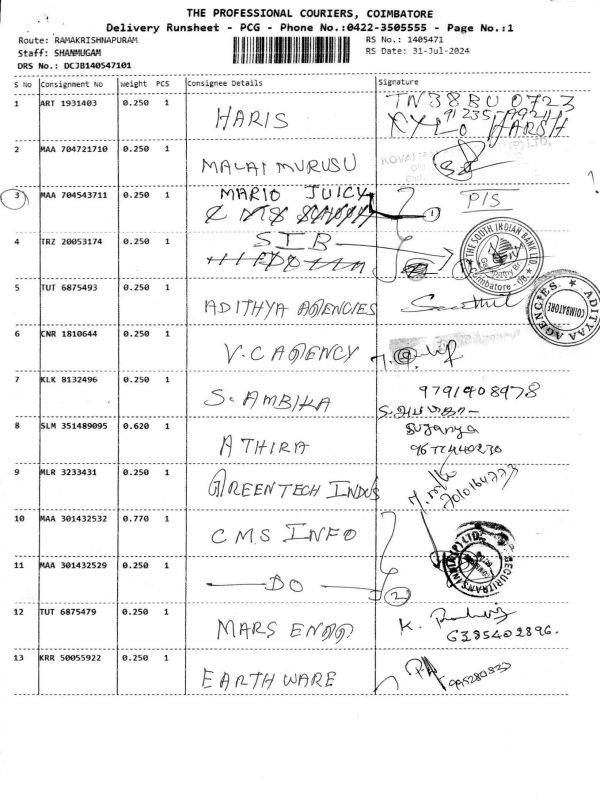 THE PROFESSIONAL COURIERS, COIMBATORE
Delivery Runsheet - PCG - Phone No.:0422-3505555 - Page No.:1
Route: RAMAKRISHNAPURAM
RS No.: 1405471
Staff: SHANMUGAM
RS Date: 31-Jul-2024
DRS No.: DCJB140547101
S No Consignment No Weight PCS Consignee Details Signature
1 ART 1931403 0.250 1 HARIS TN38BU 0723
XYLO HARSH
2 MAA 704721710 0.250 1 MALAI MURUSU
3 MAA 704543711 0.250 1 MARIO JUICY 1 P/S
4 TRZ 20053174 0.250 1 SIB THE SOUTH INDIAN BANK LTD
Coimbatore
5 TUT 6875493 0.250 1 ADITHYA AGENCIES Senthil ADITYAA AGENCIES COIMBATORE
6 CNR 1810644 0.250 1 V.C AGENCY
7 KLK 8132496 0.250 1 S. AMBIKA 9791408978
8 SLM 351489095 0.620 1 ATHIRA Suganya
9 MLR 3233431 0.250 1 GREENTECH INDUS
10 MAA 301432532 0.770 1 C.M.S INFO
11 MAA 301432529 0.250 1 DO 2
12 TUT 6875479 0.250 1 MARS ENGG. K.
6385402896.
13 KRR 50055922 0.250 1 EARTHWARE